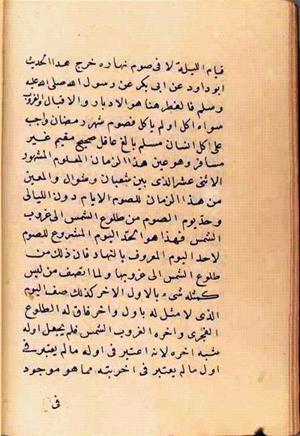 قيام الليلة لا في صوم نهاره خرج هذا الحديث
ابو داود عن ابى بكر عن رسول الله صلى الله عليه
وسلم فالفطر هنا هو الادبار والاقبال الغروب
سواء اكل او لم ياكل فصوم شهر رمضان واجب
على كل انسان مسلم بالغ عاقل صحيح مقيم غير
مسافر وهو عين هذا الزمان المعلوم المشهور
الاثنى عشر الذى بين شعبان وشوال والمعين
من هذا الزمان للصوم الايام دون الليالى
وحد يوم الصوم من طلوع الشمس الى غروب
الشمس فهذا هو الحد اليوم المشروع للصوم
لا حد اليوم المعروف بالنهار فان ذلك من
طلوع الشمس الى غروبها ولما اتصف من ليس
كمثله شىء بالاول الاخر كذلك صف اليوم
الذى لا مثل له باول واخر فاوله الطلوع
الفجرى واخره الغروب الشمسى فلم يجعل اوله
شبه اخره لانه اعتبر فى اوله ما لم يعتبر فى
اول ما لم يعتبر فى اخريته مما هو موجود
فى